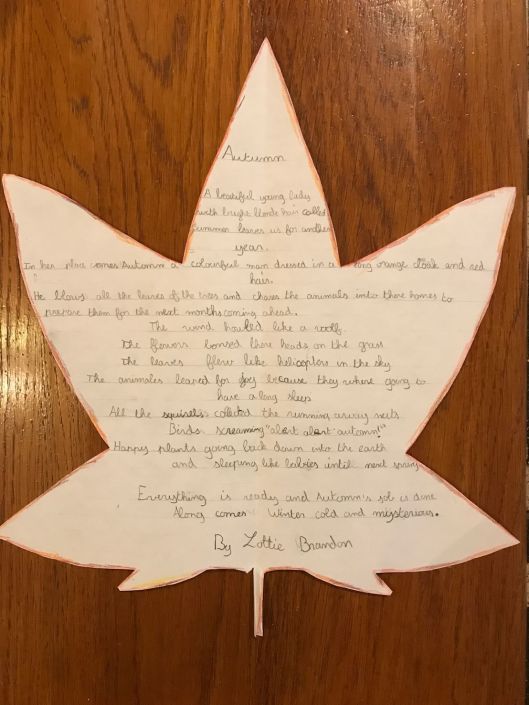 Autumn
A beautiful young lady
with bright blonde hair called
summer leaves us for another
year.
In her place comes Autumn a colourful man dressed in a long orange cloak and red
hair.
He blows all the leaves of the trees and chases the animals into there homes to
prepare them for the next months coming ahead.
The wind howled like a wolf.
The flowers bonsed there heads on the grass
The leaves flew like helicopters in the sky
The animales leaped for joy because they where going to
have a long sleep
All the squirels collected the running away nuts
Birds screaming "alert alert autumn!"
Happy plants going back down into the earth
and sleeping like babies intill next spring
Everything is ready and Autumn's job is done
Along comes Winter cold and mysterious.
By Lottie Brandon